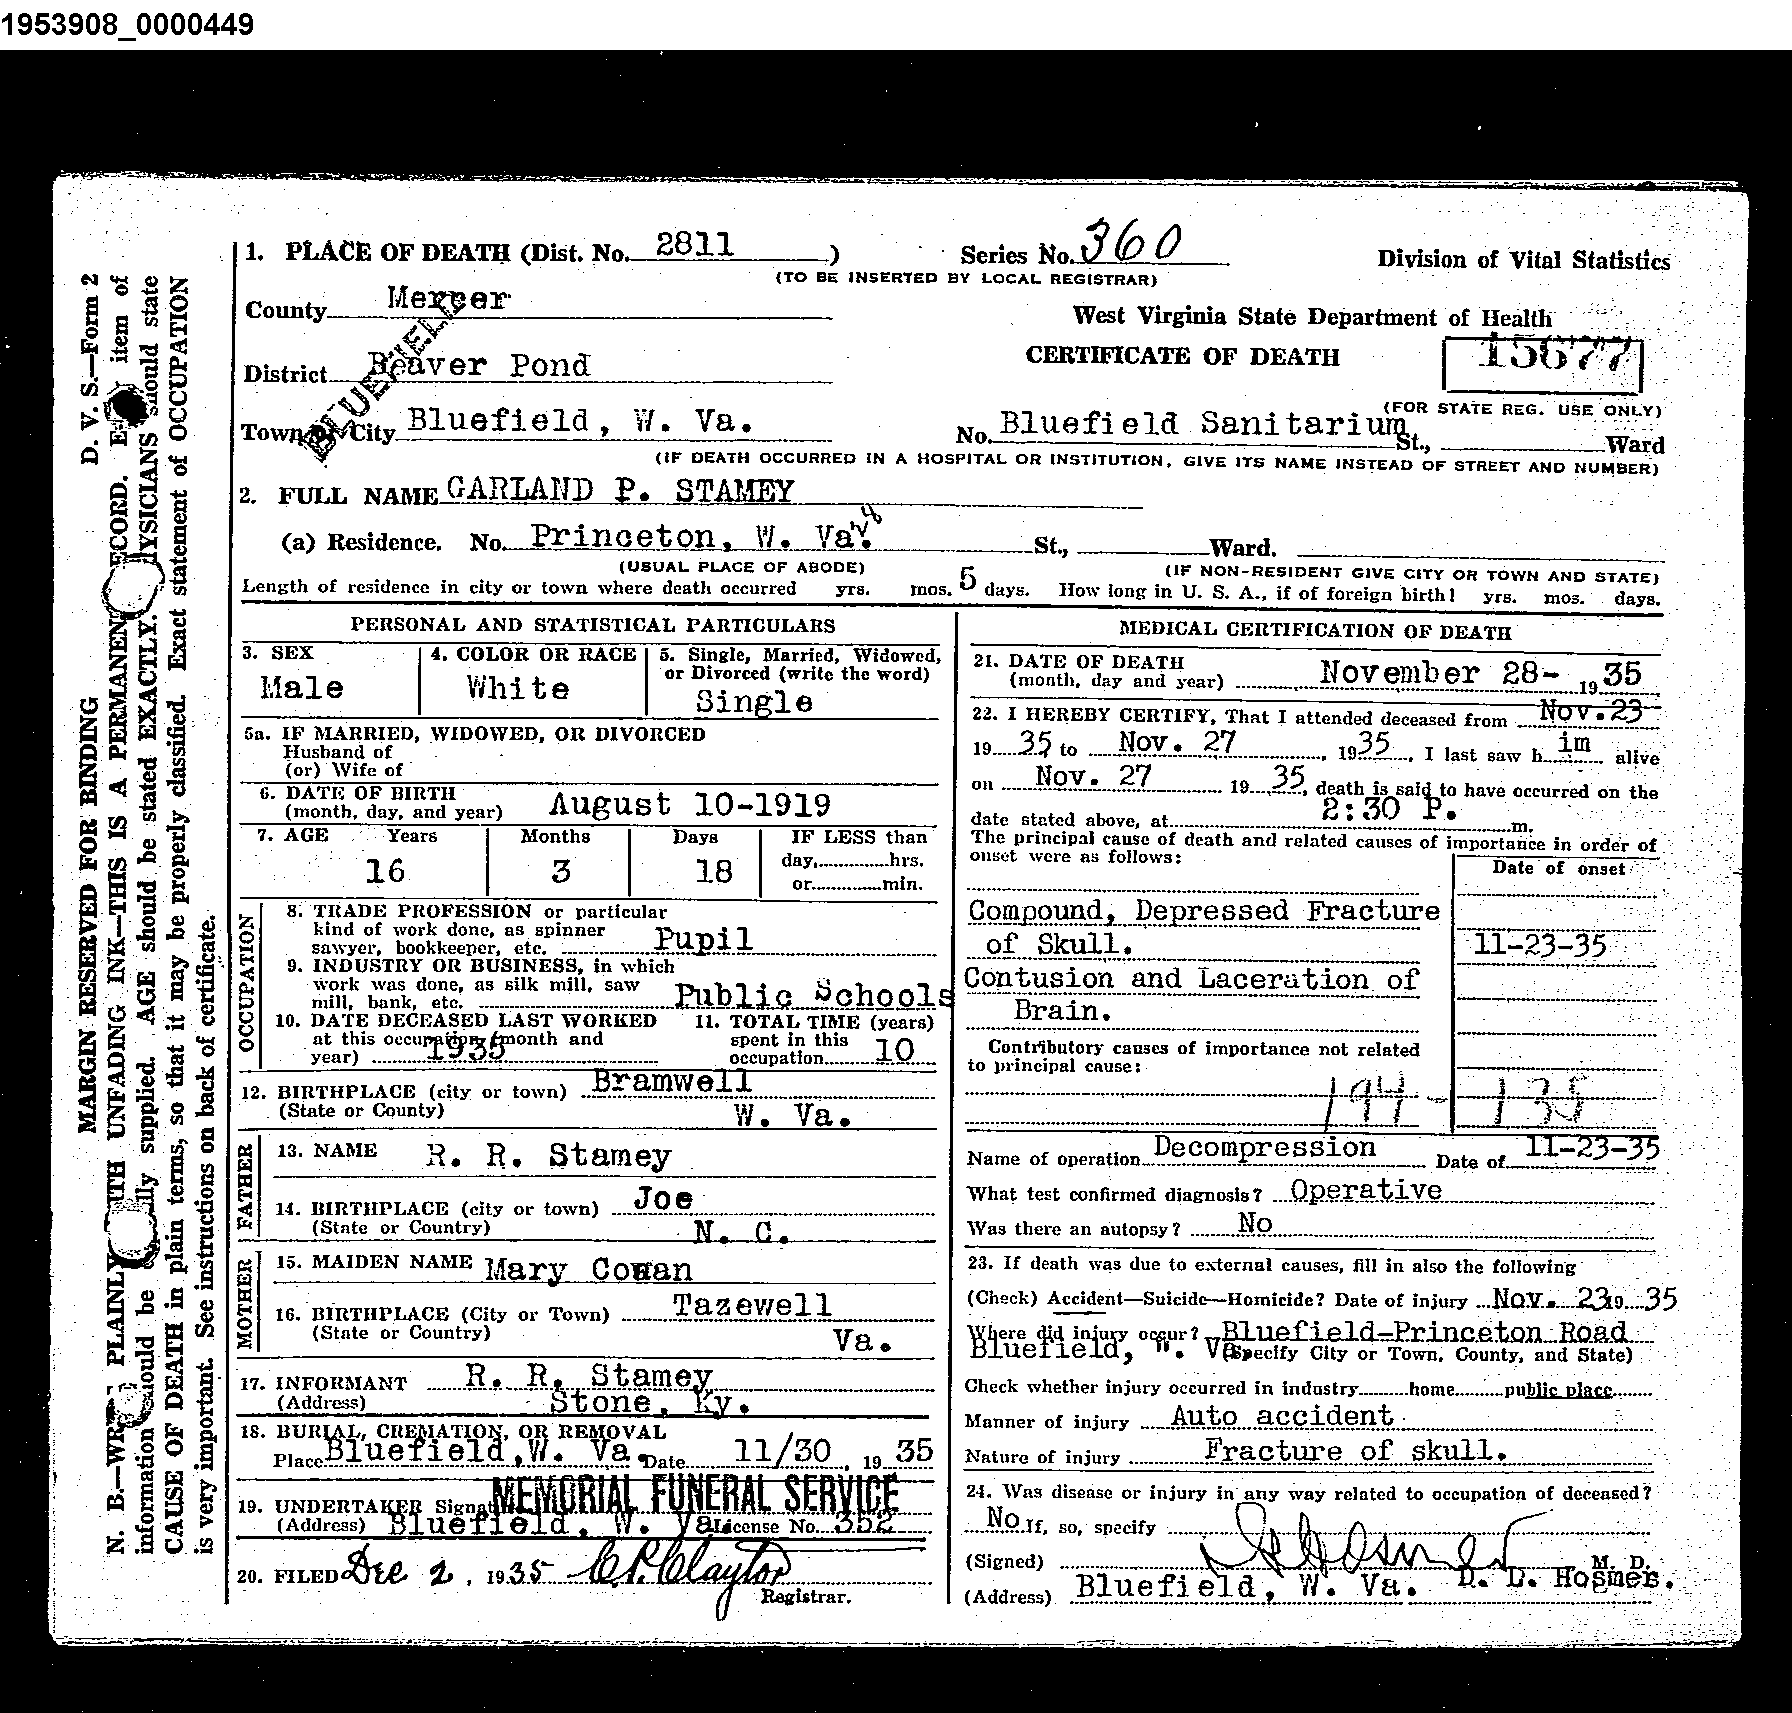 1953908_0000449
1. PLACE OF DEATH (Dist. No. 2811 )
Series No. 360
Division of Vital Statistics
(TO BE INSERTED BY LOCAL REGISTRAR)
County Mercer
West Virginia State Department of Health
CERTIFICATE OF DEATH
15677
District Beaver Pond
BLUEFIELD
(FOR STATE REG. USE ONLY)
Town or City Bluefield, W. Va.
No. Bluefield Sanitarium St., Ward
(IF DEATH OCCURRED IN A HOSPITAL OR INSTITUTION, GIVE ITS NAME INSTEAD OF STREET AND NUMBER)
2. FULL NAME GARLAND P. STAMEY
(a) Residence. No. Princeton, W. Va. St., Ward.
(USUAL PLACE OF ABODE) (IF NON-RESIDENT GIVE CITY OR TOWN AND STATE)
Length of residence in city or town where death occurred yrs. mos. 5 days. How long in U. S. A., if of foreign birth? yrs. mos. days.
PERSONAL AND STATISTICAL PARTICULARS
3. SEX
Male
4. COLOR OR RACE
White
5. Single, Married, Widowed,
or Divorced (write the word)
Single
5a. IF MARRIED, WIDOWED, OR DIVORCED
Husband of
(or) Wife of
6. DATE OF BIRTH
(month, day, and year) August 10-1919
7. AGE Years Months Days IF LESS than
16 3 18 day, hrs.
or min.
OCCUPATION
8. TRADE PROFESSION or particular
kind of work done, as spinner
sawyer, bookkeeper, etc. Pupil
9. INDUSTRY OR BUSINESS, in which
work was done, as silk mill, saw
mill, bank, etc. Public Schools
10. DATE DECEASED LAST WORKED
at this occupation (month and
year) 1935
11. TOTAL TIME (years)
spent in this
occupation 10
12. BIRTHPLACE (city or town) Bramwell
(State or County) W. Va.
FATHER
13. NAME R. R. Stamey
14. BIRTHPLACE (city or town) Joe
(State or Country) N. C.
MOTHER
15. MAIDEN NAME Mary Cowan
16. BIRTHPLACE (City or Town) Tazewell
(State or Country) Va.
17. INFORMANT R. R. Stamey
(Address) Stone, Ky.
18. BURIAL, CREMATION, OR REMOVAL
Place Bluefield, W. Va. Date 11/30, 19 35
19. UNDERTAKER MEMORIAL FUNERAL SERVICE
(Address) Bluefield, W. Va. License No. 352
20. FILED Dec 2, 1935 C. P. Clayton
Registrar.
MEDICAL CERTIFICATION OF DEATH
21. DATE OF DEATH
(month, day and year) November 28- 19 35
22. I HEREBY CERTIFY, That I attended deceased from Nov. 23
19 35 to Nov. 27, 19 35, I last saw h im alive
on Nov. 27 19 35, death is said to have occurred on the
date stated above, at 2:30 P. m.
The principal cause of death and related causes of importance in order of
onset were as follows:
Date of onset
Compound, Depressed Fracture
of Skull. 11-23-35
Contusion and Laceration of
Brain.
Contributory causes of importance not related
to principal cause:
194- 135
Name of operation Decompression Date of 11-23-35
What test confirmed diagnosis? Operative
Was there an autopsy? No
23. If death was due to external causes, fill in also the following
(Check) Accident—Suicide—Homicide? Date of injury Nov. 23 19 35
Where did injury occur? Bluefield-Princeton Road
Bluefield, W. Va. (Specify City or Town, County, and State)
Check whether injury occurred in industry home public place
Manner of injury Auto accident
Nature of injury Fracture of skull.
24. Was disease or injury in any way related to occupation of deceased?
No If, so, specify
(Signed) M. D.
D. L. Hosmer.
(Address) Bluefield, W. Va.
D. V. S.—Form 2
MARGIN RESERVED FOR BINDING
N. B.—WRITE PLAINLY WITH UNFADING INK—THIS IS A PERMANENT RECORD. Every item of
information should be carefully supplied. AGE should be stated EXACTLY. PHYSICIANS should state
CAUSE OF DEATH in plain terms, so that it may be properly classified. Exact statement of OCCUPATION
is very important. See instructions on back of certificate.